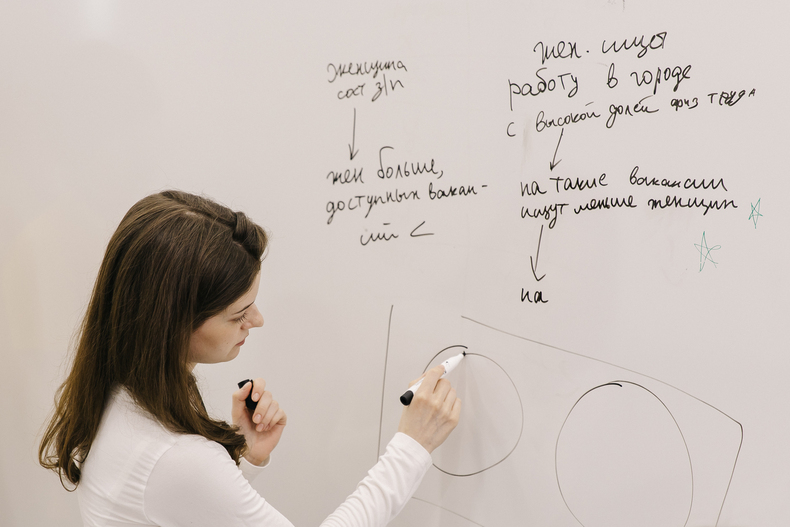 женщина
сост з/п
жен больше,
доступных вакан-
сий <
жен. ищут
работу в городе
с высокой долей физ труда
на такие вакансии
идут меньше женщин
на